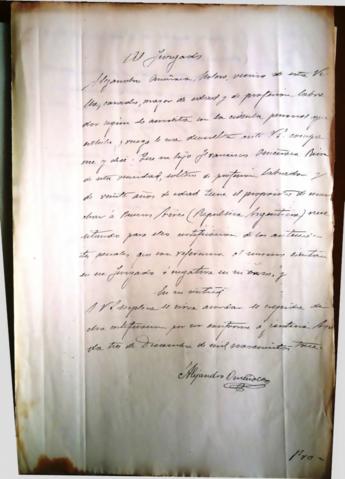 Al Juzgado
Alejandro Ameñoca Molero, vecino de esta Vi-
lla, casado, mayor de edad y de profesión labra-
dor según lo acredita con la cédula personal que
exhibe, y ruega le sea devuelta ante Vd. compa-
rece y dice: Que su hijo Francisco
de esta vecindad, soltero, de profesión Labrador y
de veinte años de edad tiene el propósito de mar-
char a Buenos Aires (República Argentina) nece-
sitando para ello certificación de los antece-
dentes penales, que con referencia al mismo existan
en su Juzgado o negativa en su caso, y
En su virtud
A Vd. suplica se sirva acordar se expida
dicha certificación por ser conforme a justicia
tres de Diciembre de mil novecientos trece.
Alejandro Ameñoca